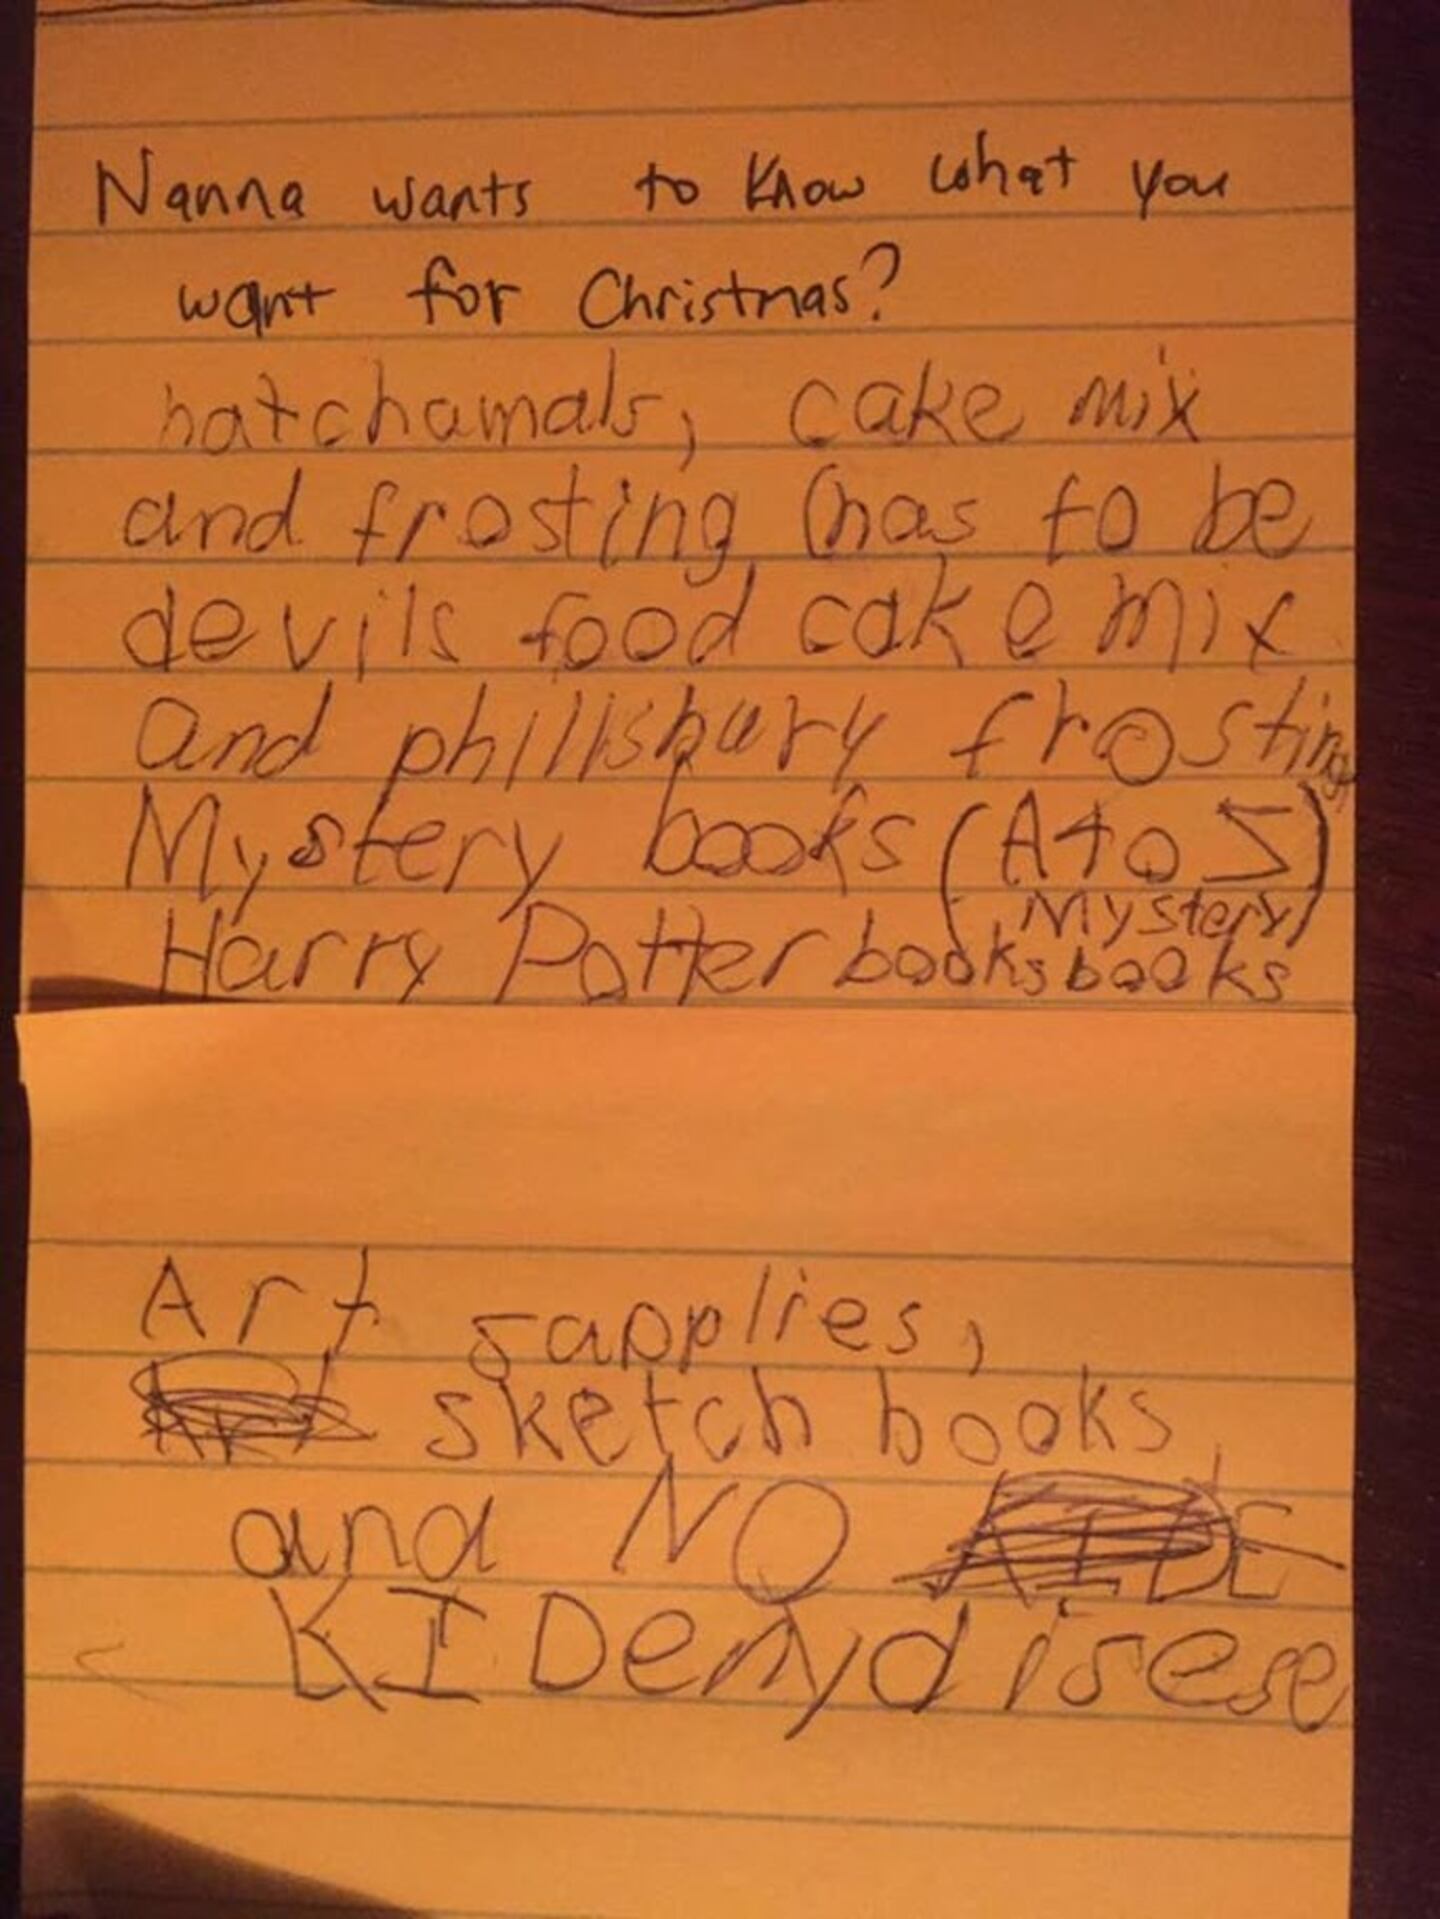 Nanna wants to know what you
want for Christmas?
hatchamals, cake mix
and frosting (has to be
devils food cake mix
and phillsbury frosting
Mystery books (A to Z)
Mystery)
Harry Potter books books
Art sapplies,
sketch books
and NO
KIDenydisese